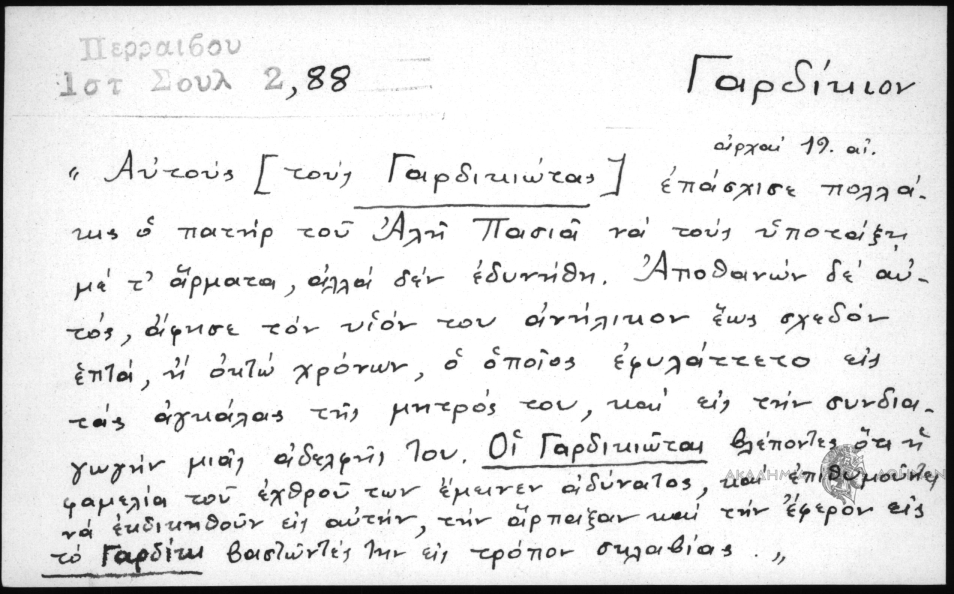 Περραιβου
Ιστ Σουλ 2,88
Γαρδίκιον
ἀρχαί 19. αἰ.
„ Αὐτούς [τούς Γαρδικιώτας] ἐπάσχισε πολλά-
κις ὁ πατήρ τοῦ Ἀλῆ Πασιᾶ νά τούς ὑποτάξῃ
μέ τ' ἄρματα, ἀλλά δέν ἐδυνήθη. Ἀποθανών δέ αὐ-
τός, ἄφησε τόν υἱόν του ἀνήλικον ἕως σχεδόν
ἑπτά, ἤ ὀκτώ χρόνων, ὁ ὁποῖος ἐφυλάττετο εἰς
τάς ἀγκάλας τῆς μητρός του, καί εἰς τήν συνδια-
γωγήν μιᾶς ἀδελφῆς του. Οἱ Γαρδικιῶται βλέποντες ὅτι ἡ
φαμελία τοῦ ἐχθροῦ των ἔμεινεν ἀδύνατος, καί ἐπιθυμοῦντες
νά ἐκδικηθοῦν εἰς αὐτήν, τήν ἅρπαξαν καί τήν ἔφερον εἰς
τό Γαρδίκι βαστῶντές την εἰς τρόπον σκλαβίας . „